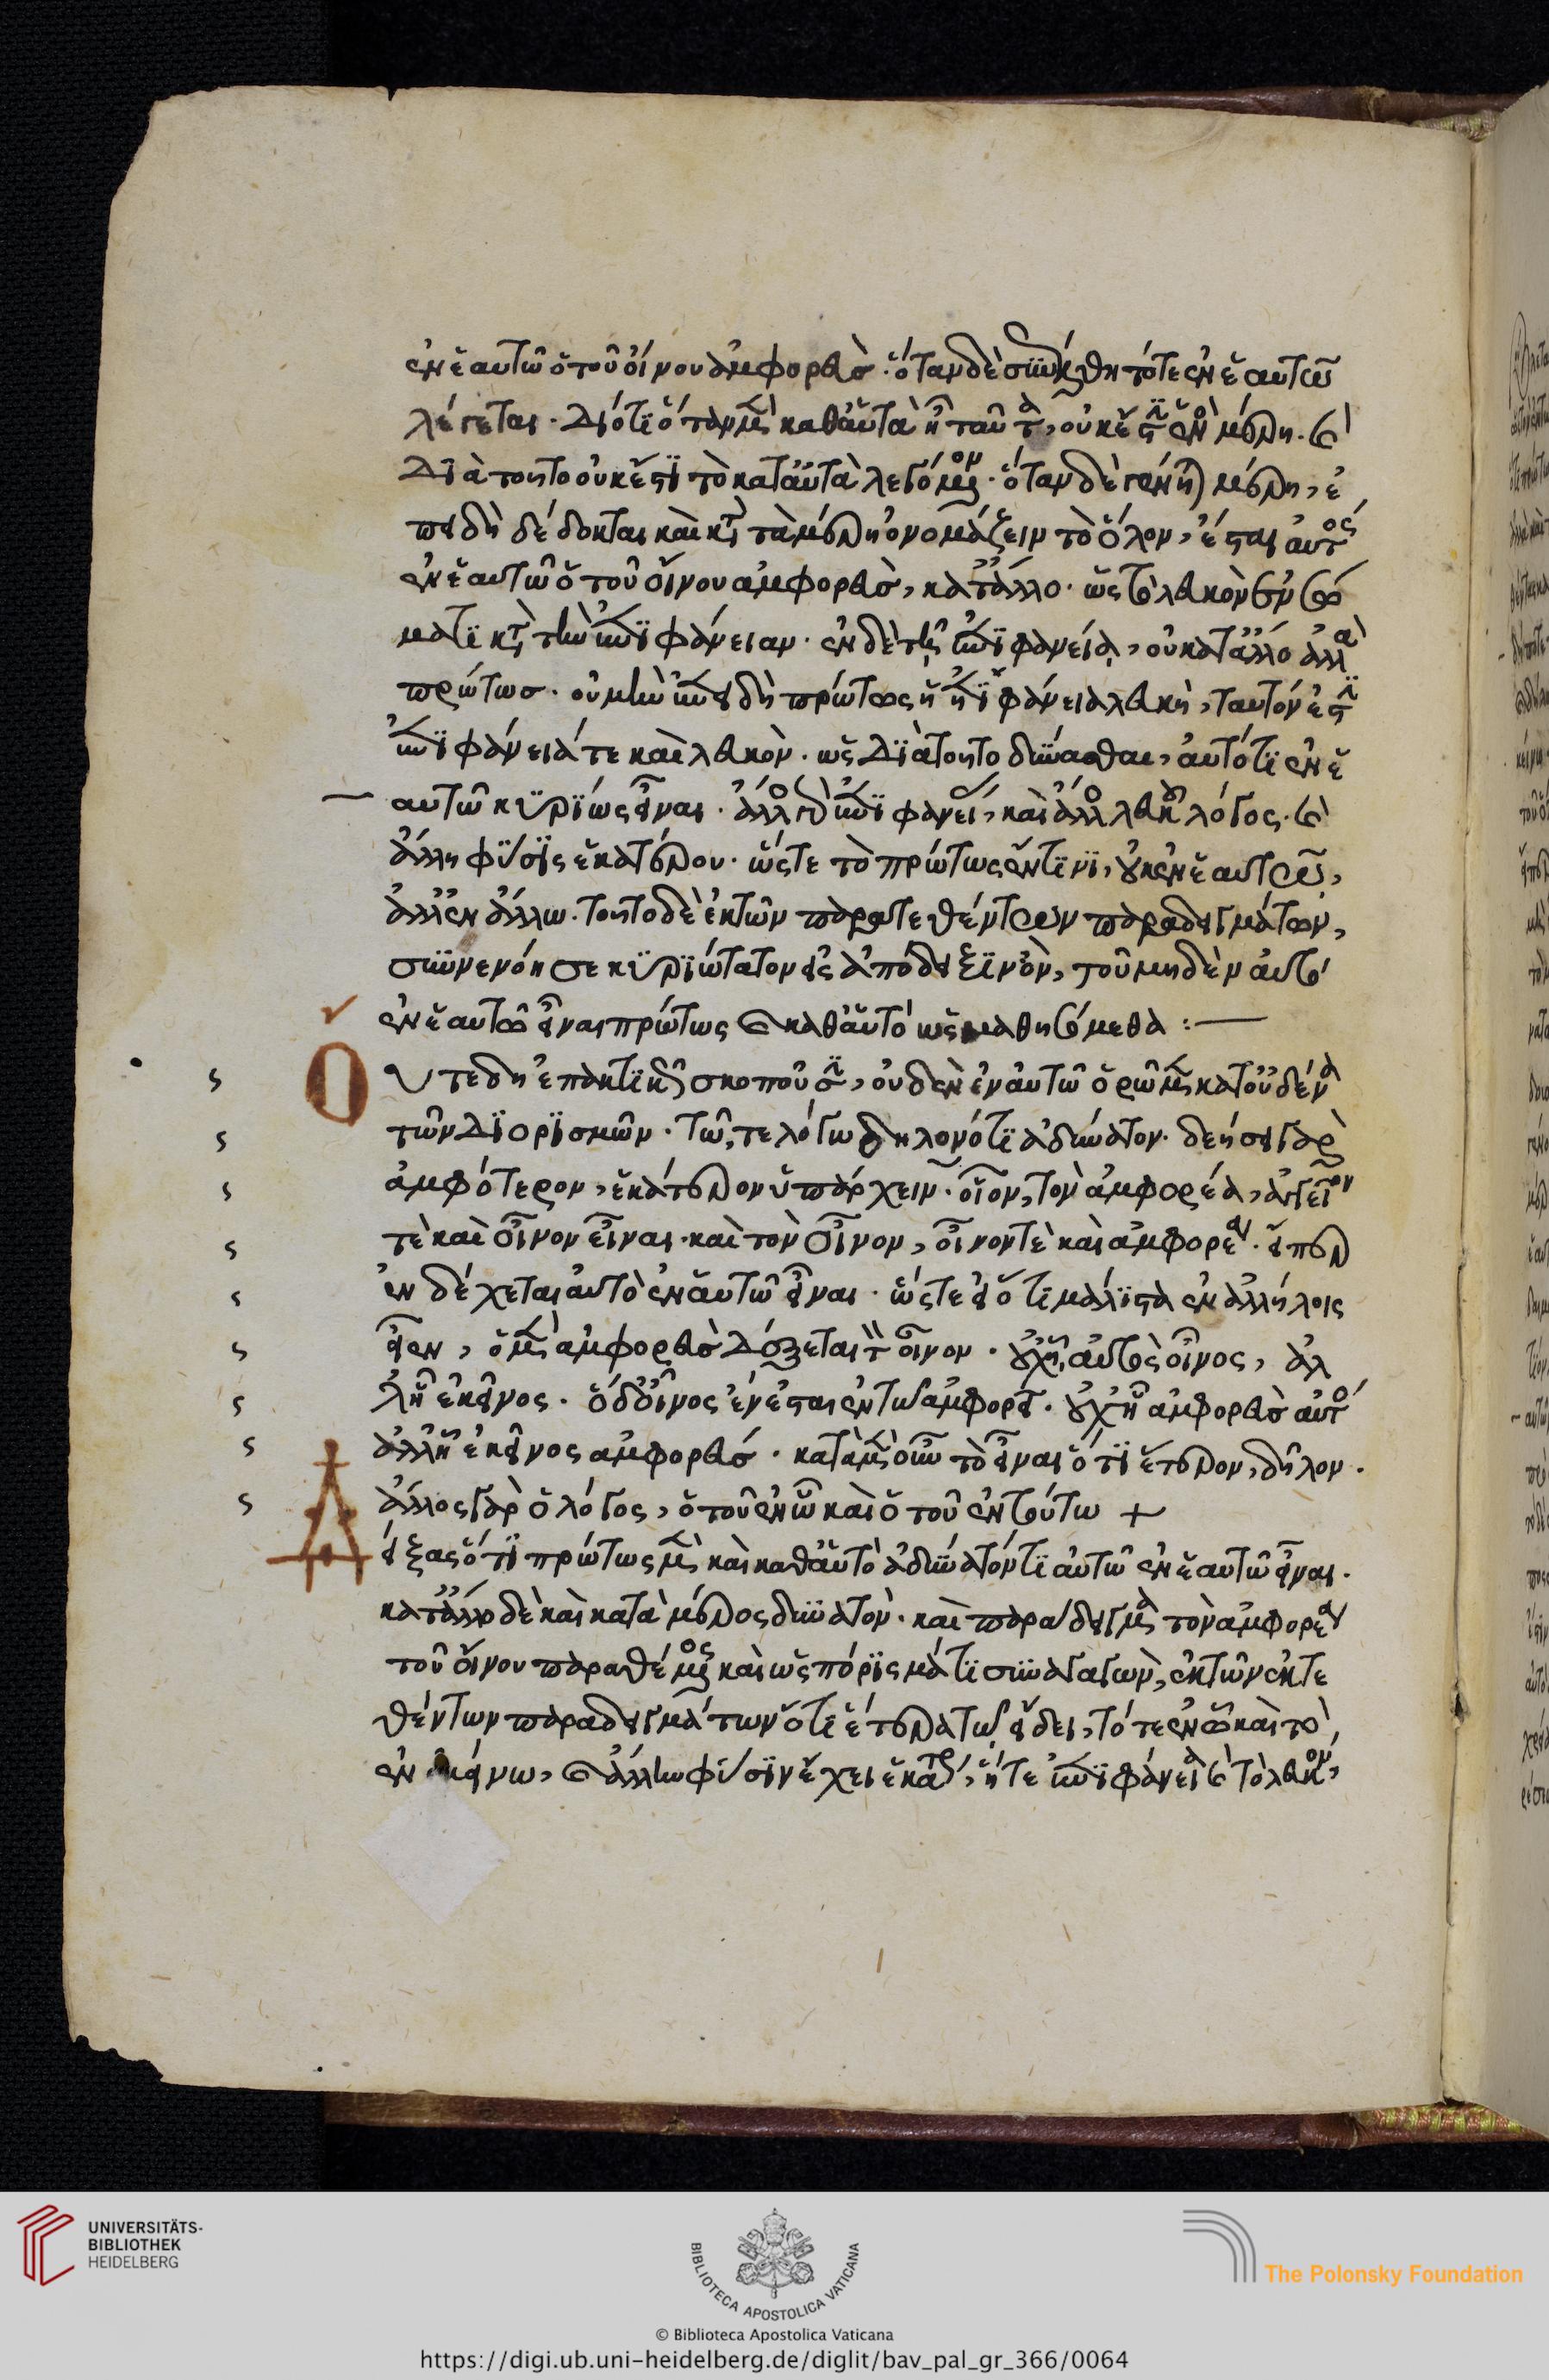 ἐν ἑαυτῶ ὁ τοῦ οἴνου ἀμφορεύς· ὅταν δὲ συντεθῆ τότε ἐν ἑαυτῶ
λέγεται· διότι ὅταν μὲν καθ' αὑτὰ ἦ ταῦτα, οὐκ ἔστιν μέρη· καὶ
διὰ τοῦτο οὐκ ἔστι τὸ κατ' αὐτὰ λεγόμενον· ὅταν δὲ γένηται μέρη, ἐ
πειδὴ δέδοκται καὶ κατὰ τὰ μέρη ὀνομάζειν τὸ ὅλον, ἔσται αὐτὸς
ἐν ἑαυτῶ ὁ τοῦ οἴνου ἀμφορεύς, κατ' ἄλλο· ὡς τὸ λευκὸν ἐν σώ
ματι κατὰ τὴν ἐπιφάνειαν· ἐν δὲ τῆ ἐπιφανεία, οὐ κατ' ἄλλο ἀλλὰ
πρώτως· οὐ μὴν ἐπειδὴ πρώτως ἡ ἐπιφάνεια λευκὴ, ταυτόν ἐστιν
ἐπιφάνειά τε καὶ λευκὸν· ὡς διὰ τοῦτο δύνασθαι, αὐτό τι ἐν ἑ
αυτῶ κυρίως εἶναι· ἄλλος ἐπιφανείας, καὶ ἄλλος λευκοῦ λόγος· καὶ
ἄλλη φύσις ἑκατέρου· ὥστε τὸ πρώτως ἔν τινι, οὐκ ἐν ἑαυτῶ,
ἀλλ' ἐν ἄλλω· τοῦτο δὲ ἐκ τῶν παρατεθέντων παραδειγμάτων,
συνενόησε κυριώτατον εἰς ἀπόδειξιν ὂν, τοῦ μηδὲν αὐτὸ
ἐν ἑαυτῶ εἶναι πρώτως καὶ καθ' αὑτό ὡς μαθησόμεθα :—
Οὔτε δὴ ἐπακτικῶς σκοποῦσιν, οὐδὲν ἐν αὑτῶ ὁρῶμεν κατ' οὐδένα
τῶν διορισμῶν· τῶ, τε λόγω δῆλον ὅτι ἀδύνατον· δεήσει γὰρ
ἀμφότερον, ἑκάτερον ὑπάρχειν· οἷον, τὸν ἀμφορέα, ἀγγεῖον
τὲ καὶ οἶνον εἶναι· καὶ τὸν οἶνον, οἶνον τὲ καὶ ἀμφορέα· εἴπερ
ἐνδέχεται αὐτὸ ἐν αὑτῶ εἶναι· ὥστε εἰ ὅτι μάλιστα ἐν ἀλλήλοις
εἶεν, ὁ μὲν ἀμφορεὺς δέξεται τὸν οἶνον· οὐχ ἧ, αὐτὸς οἶνος, ἀλ
λ' ἧ ἐκεῖνος· ὁ δ' οἶνος ἐνέσται ἐν τῶ ἀμφορεῖ· οὐχ ἧ ἀμφορεὺς αὐτὸς
ἀλλ' ἧ ἐκεῖνος ἀμφορεύς· κατὰ μὲν οὖν τὸ εἶναι ὅτι ἕτερον, δῆλον·
ἄλλος γὰρ ὁ λόγος, ὁ τοῦ ἐν ὧ καὶ ὁ τοῦ ἐν τούτω +
Δείξας ὅτι πρώτως μὲν καὶ καθ' αὑτὸ ἀδύνατόν τι αὐτῶ ἐν ἑαυτῶ εἶναι·
κατ' ἄλλο δὲ καὶ κατὰ μέρος δυνατὸν· καὶ παράδειγμα τὸν ἀμφορέα
τοῦ οἴνου παραθέμενος καὶ ὡς πόρισμά τι συναγαγὼν, ἐκ τῶν ἐκτε
θέντων παραδειγμάτων ὅτι ἕτερα τῶ εἴδει, τό τε ἐν ὧ καὶ τὸ
ἐν ἐκείνω, καὶ ἄλλην φύσιν ἔχει ἑκάτερον, ἥτε ἐπιφάνεια καὶ τὸ λευκὸν,
UNIVERSITÄTS-
BIBLIOTHEK
HEIDELBERG
BIBLIOTECA APOSTOLICA VATICANA
© Biblioteca Apostolica Vaticana
The Polonsky Foundation
https://digi.ub.uni-heidelberg.de/diglit/bav_pal_gr_366/0064